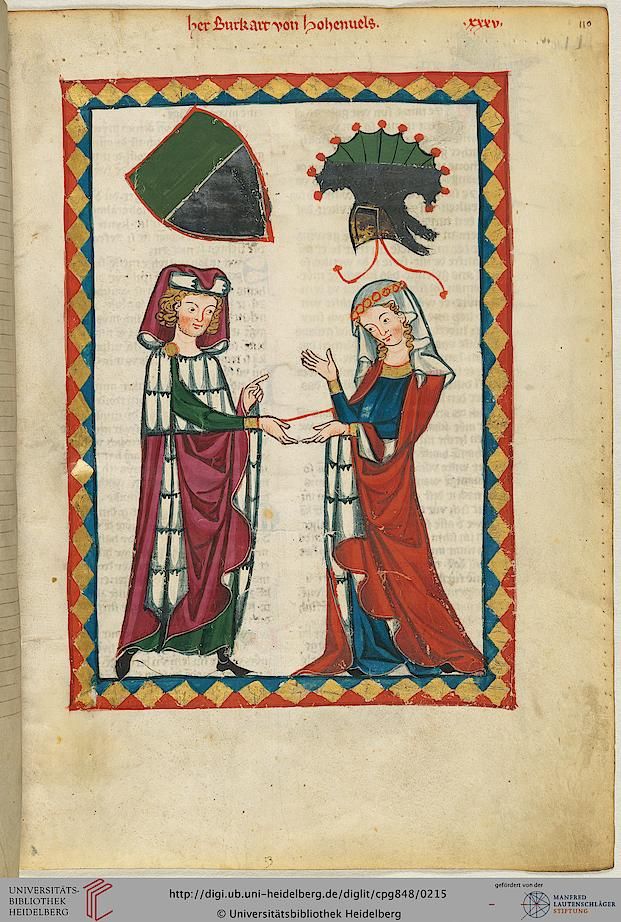 her Burkart von Hohenuels.
·xxxv·
110
53
UNIVERSITÄTS-
BIBLIOTHEK
HEIDELBERG
http://digi.ub.uni-heidelberg.de/diglit/cpg848/0215
© Universitätsbibliothek Heidelberg
gefördert von der
MANFRED
LAUTENSCHLÄGER
STIFTUNG